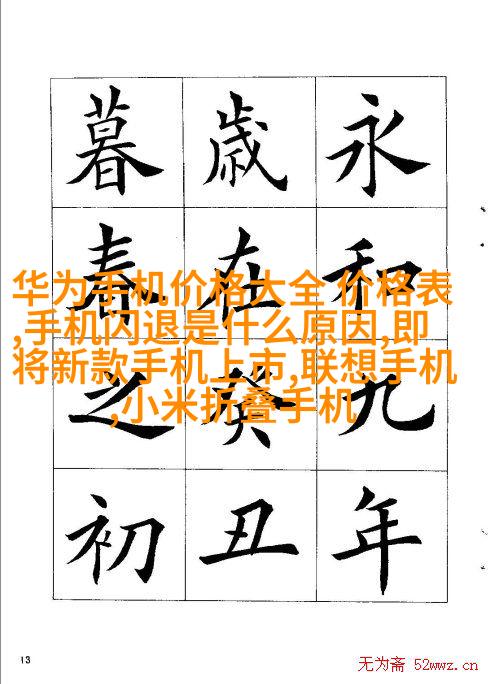 永和九年
歲在癸丑
暮春之初
华为手机价格大全 价格表
,手机闪退是什么原因,即
将新款手机上市,联想手机
,小米折叠手机
13
无为斋 52wwz.cn